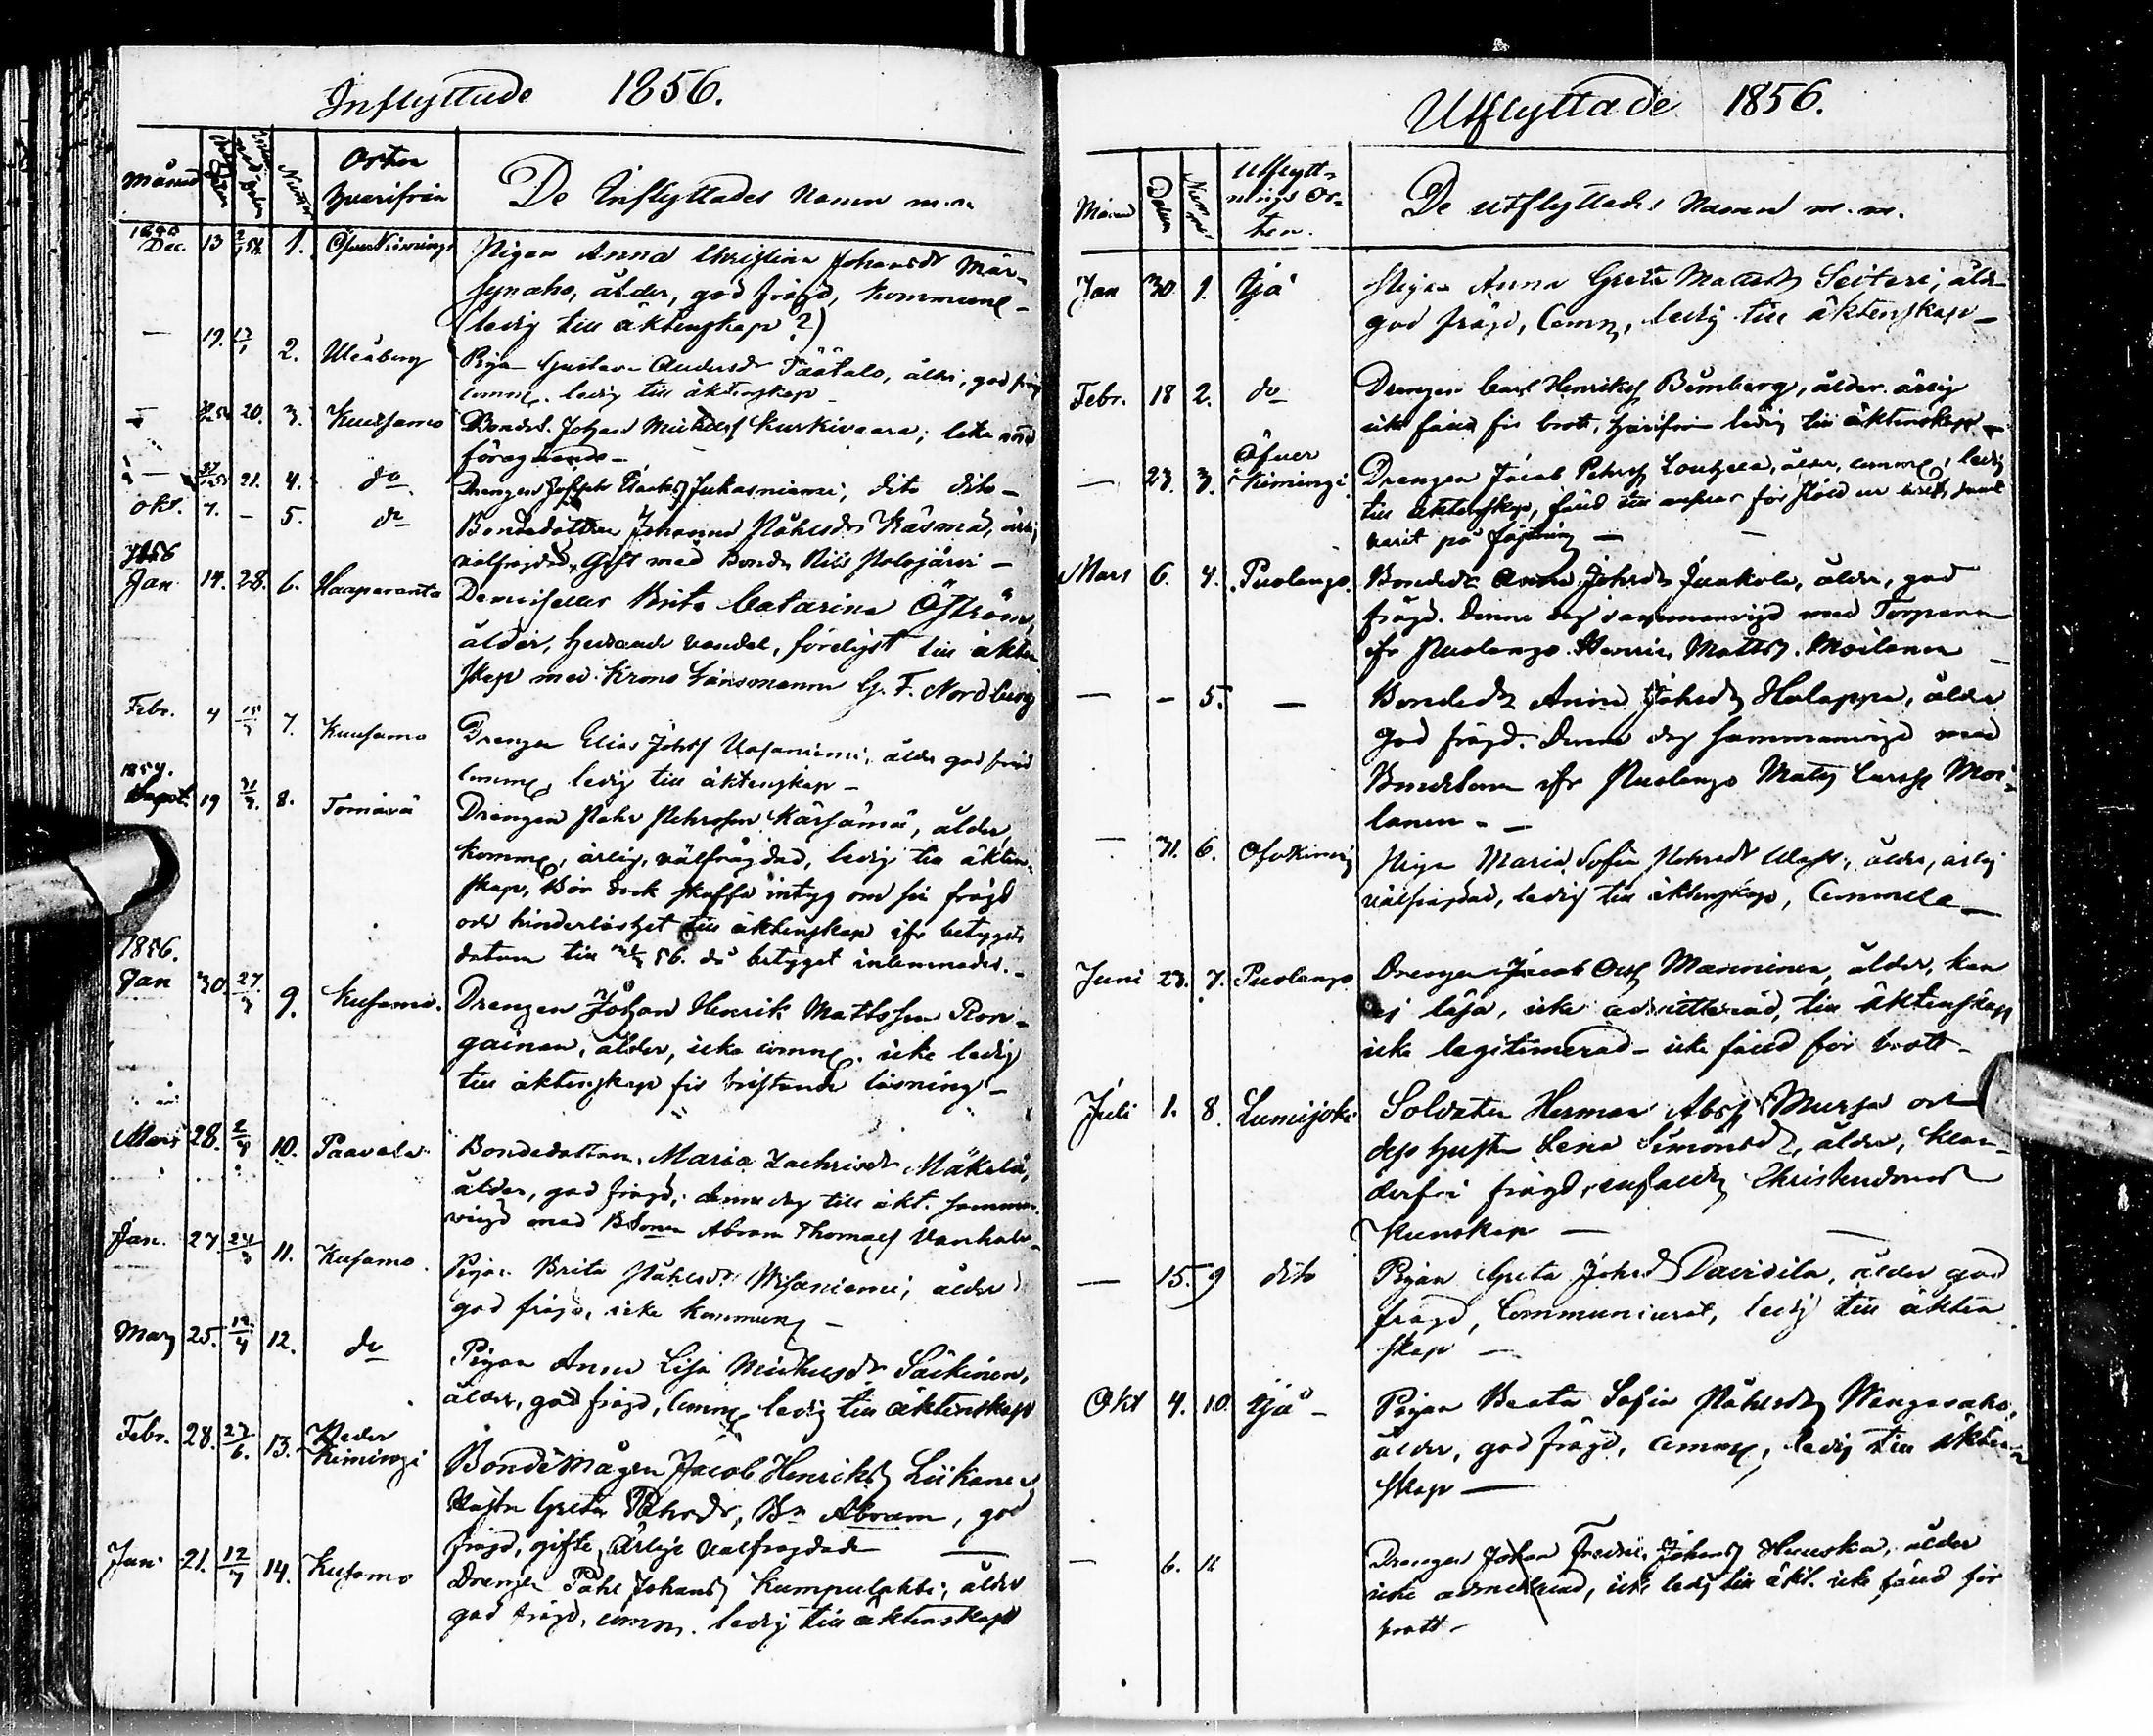 Inflyttade 1856.
Månad Numer Orten hvarifrån De Inflyttades Namn m.m.
Dec. 13 1. Öfver Kiiminge Pigan Anna Christina Johansdr
ålder, god frägd,
(ledig till äktenskap?)
— 19. 2. Uleåborg Pigan Gustava Andersdr Täätalo, ålder, god frägd
comm. ledig till äktenskap
— 20. 3. Kuusamo Bondes. Johan Kurkivaara; lika med
föregående —
— 21. 4. do Drengen Jukasniemi; dito dito —
Okt. 7. — 5. do Bondedottren Johanna Påhlsdr Käsmä,
välfrejdad, Gift med Bonde Nils Polojärvi —
1856
Jan 14. 28. 6. Haaparanta Demoiselle Brita Catarina Öström,
ålder, vandel, till äkten-
skap med Krono Länsmannen G. F. Nordberg
Febr. 4 7. Kuusamo Drengen Elias Johss ålder god frägd
comm, ledig till äktenskap —
1854.
Sept. 19 8. Tornävä Drengen Pehr Pehrsson Kärsämä, ålder,
komm, ärlig, välfrägdad, ledig till äkten-
skap, Bör dock skaffa intyg om sin frägd
och hinderlöshet till äktenskap ifr betygets
datum till 56. då betyget inlemnades. —
1856.
Jan 30. 27/3 9. Kusamo. Drengen Johan Henrik Mattsson Ron-
gainen, ålder, icke comm. icke ledig
till äktenskap för bristande läsning —
Mars 28. 2/4 10. Paavola Bondedottren Maria Zachrisdr Mäkelä,
ålder, god frägd, denna dag till äkt. samman-
vigd med BSonen Abram Thomass Vanhala —
Jan. 27 24/3 11. Kusamo. Pigan Brita Påhlsdr ålder
god frägd, icke kommun —
Mars 25. 12/4 12. do Pigan Anna Lisa Säkinen,
ålder, god frägd, Comm ledig till äktenskap
Febr. 28. 27/6. 13. Neder Kiminge Bondemågen Jacob Henrikss Liikanen
Hustr Greta Pehrsdr, Bn Abram, god
frägd, gifte, Ärlige välfrägdade —
Jan 21. 12/7 14. Kusamo Drengen Påhl Johanss Kumpulehto; ålder
god frägd, comm. ledig till äktenskap
Utflyttade 1856.
Månad Datum Numer Utflyttnings Orten. De utflyttades Namn m.m.
Jan 30 1. Ijå Pigan Anna Greta Mattsdr Seiteri; ålder
god frägd, Comm, ledig till äktenskap —
Febr. 18 2. do Drengen Carl Henrikss Blumberg, ålder ärlig
icke fäld för brott, härifrån ledig till äktenskap —
— 23. 3. Öfver Kiminge Drengen Jacob Pehrss ålder, comm, ledig
till äktenskap, fäld för stöld
varit på fästning —
Mars 6. 4. Puolango. Bondedr Anna Johsdr Jaakola, ålder, god
frägd. Denna dag sammanvigd med Torparen
ifr Puolango Henric Mattss. Moilanen —
— — 5. — Bondedr Anna Johsdr Halappa, ålder
god frägd. Denna dag sammanvigd med
Bondesonen ifr Puolango Mats Larss Moi-
lanen. —
— 31. 6. Öfv Kiming Pigan Maria Sofia Pehrsdr ålder, ärlig
välfrägdad, ledig till äktenskap, Comm —
Juni 23. 7. Puolango Drengen Jacob Manninen, ålder, kan
ej läsa, icke admitterad, till äktenskap
icke legitimerad — icke fäld för brott —
Juli 1. 8. Lumijoki Soldaten Herman Abss Mursa och
dess hustru Lena Simonsdr, ålder, klan-
derfri frägd, enfaldig Christendoms
kunskap —
— 15. 9 dito Pigan Greta Johsdr Davidila, ålder god
frägd, Communicerat, ledig till äkten
skap —
Okt 4. 10. Ijå — Pigan Beata Sofia Påhlsdr Wengasaho,
ålder, god frägd, comm, ledig till äkten-
skap —
— 6. 11 Drengen Johan Fredric Johanss Huuska, ålder
icke admitterad, icke ledig till äkt. icke fäld för
brott —